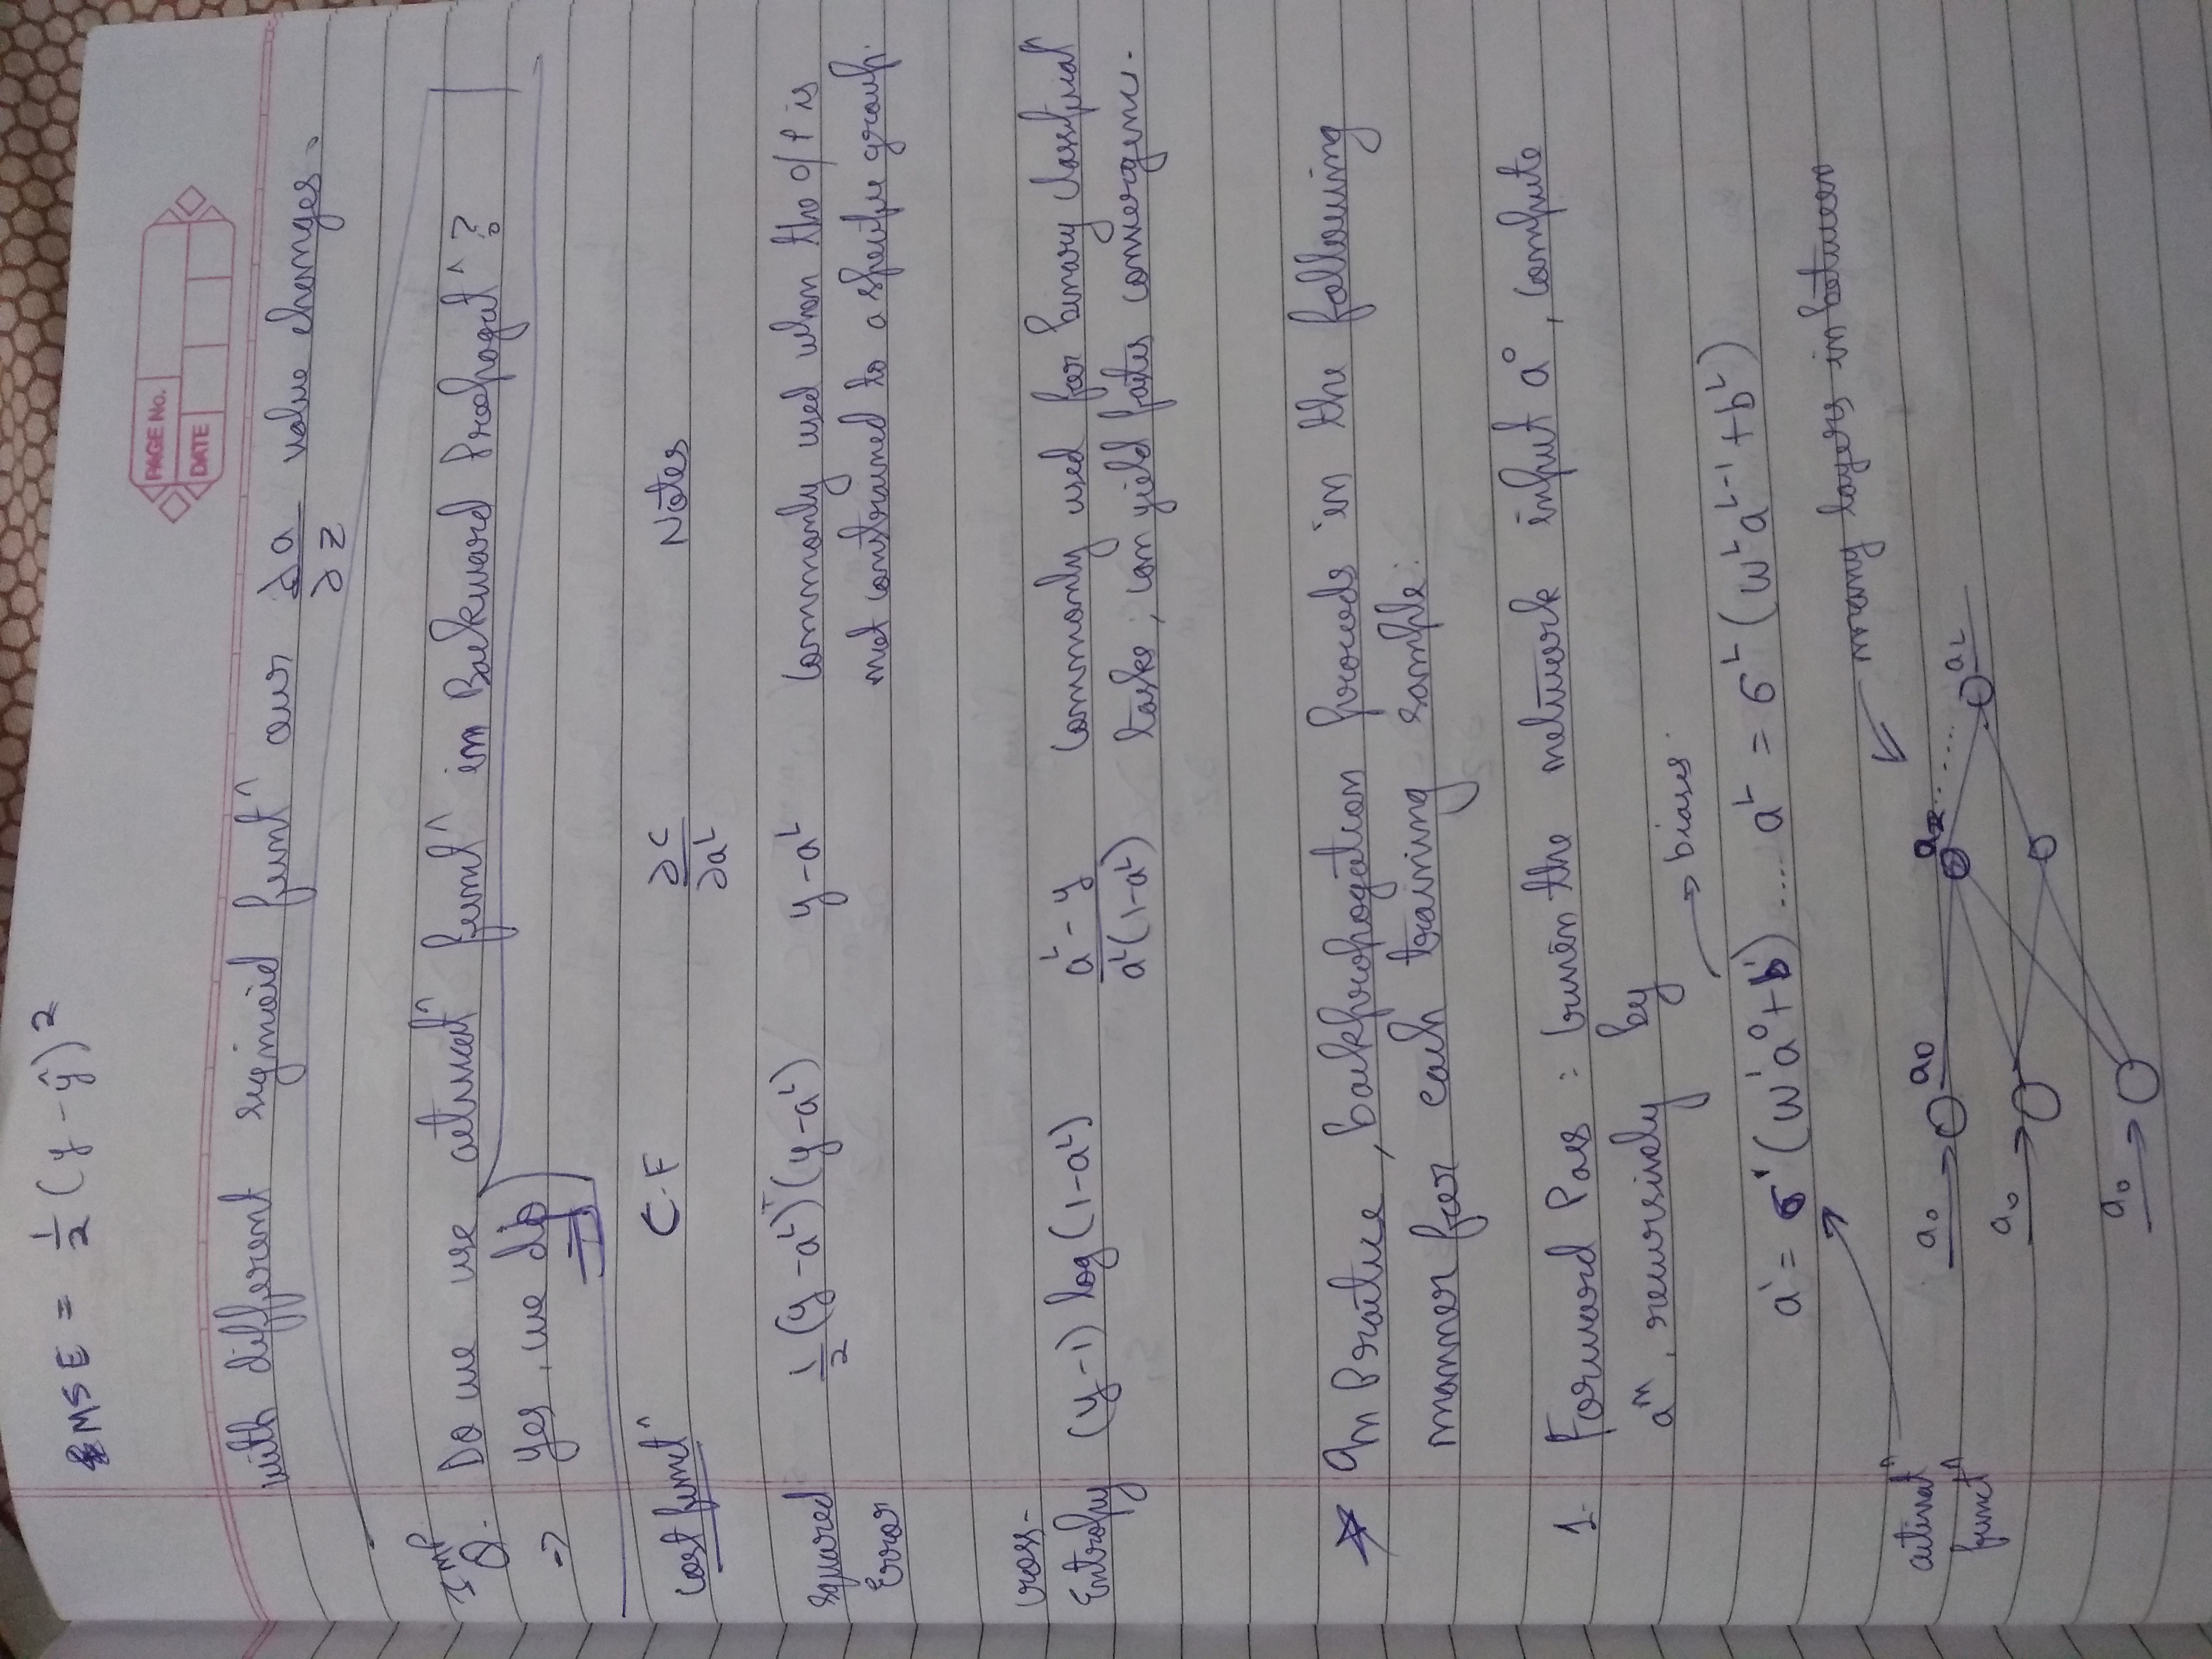 MSE = 1/2 (y - ŷ)²
PAGE No.
DATE
with different sigmoid funct^n our ∂a/∂z value changes.
Imp
Q. Do we use activat^n funct^n in Backward Propogat^n?
→ yes, we do
Cost funct^n C.F ∂C/∂a^L Notes
squared Error 1/2 (y - a^L)^T (y - a^L) y - a^L Commonly used when the o/p is
not constrained to a specific group.
Cross-Entropy (y - 1) log (1 - a^L) a^L - y / a^L(1 - a^L) Commonly used for binary classificat^n
tasks; can yield faster convergence.
☆ In Practice, backpropogation proceeds in the following
manner for each training sample:
1. Forward Pass : Given the network input a⁰, compute
a^m, recursively by
→ biases.
a¹ = σ¹(w¹a⁰ + b¹) .... a^L = σ^L (w^L a^L-1 + b^L)
activat^n
funct^n
← many layers in between
a₀ → a₀ a₂ ......
a₀ → a^L
a₀ →